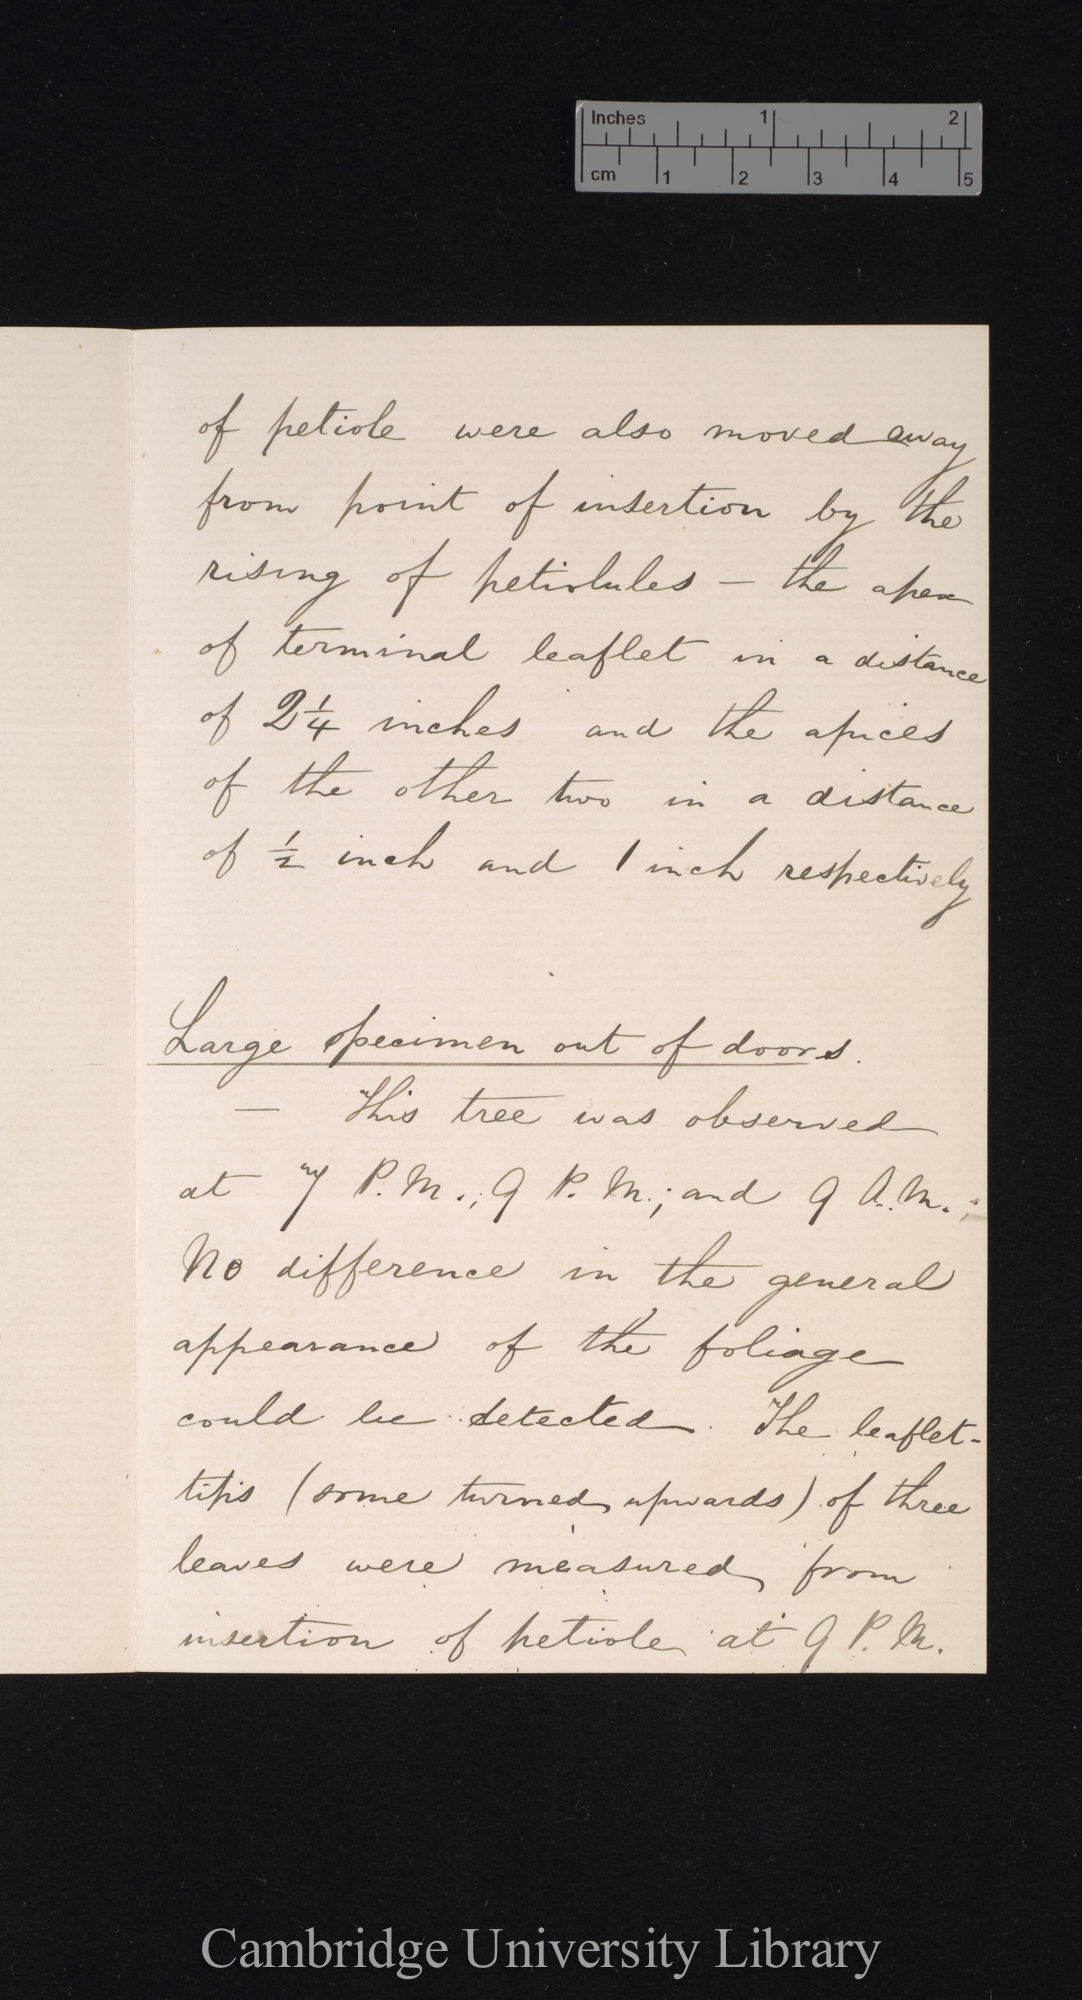 Inches 1 2
cm 1 2 3 4 5
of petiole were also moved away
from point of insertion by the
rising of petiolules — the apex
of terminal leaflet in a distance
of 2¼ inches and the apices
of the other two in a distance
of ½ inch and 1 inch respectively
Large specimen out of doors.
— This tree was observed
at 7 P.M.; 9 P.M.; and 9 A.M.;
No difference in the general
appearance of the foliage
could be detected. The leaflet-
tips (some turned upwards) of three
leaves were measured from
insertion of petiole at 9 P.M.
Cambridge University Library